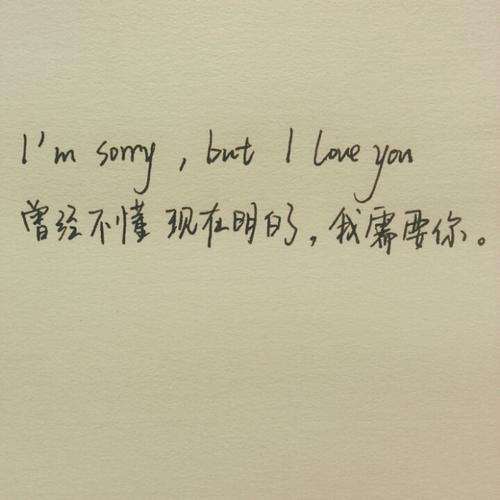 I'm sorry, but I love you
曾经不懂 现在明白了，我需要你。